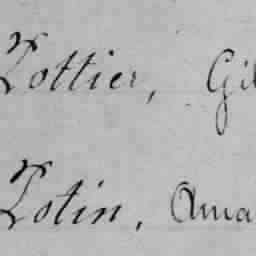 Lottier, Gil
Lotin, Ama